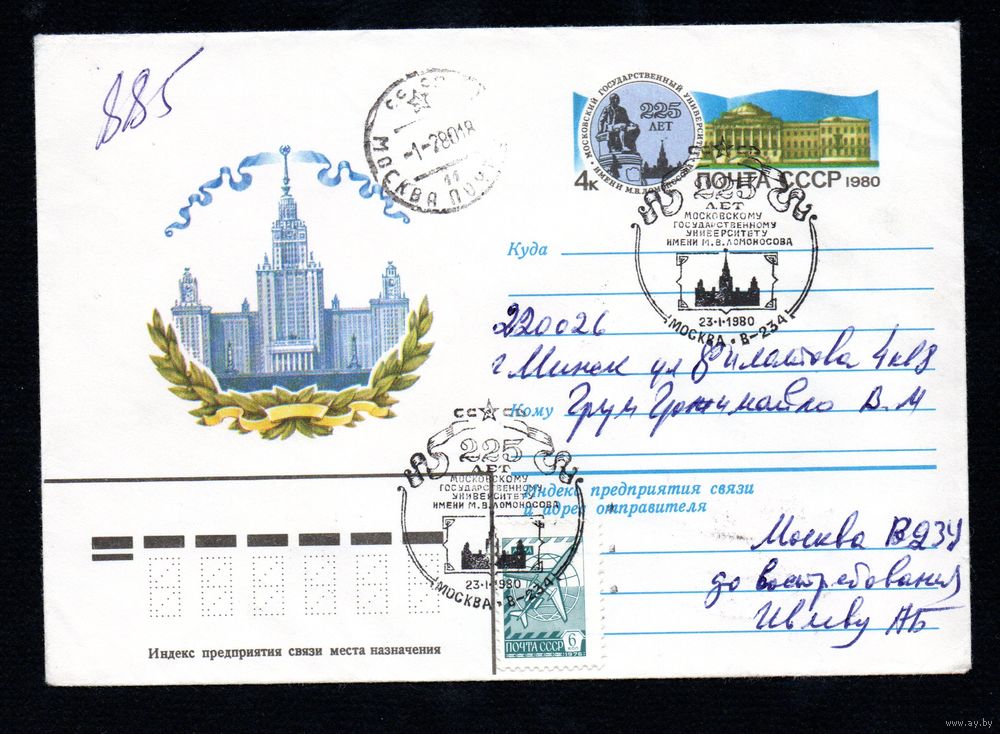 885
СССР
-1-28018
МОСКВА
11
МОСКОВСКИЙ ГОСУДАРСТВЕННЫЙ УНИВЕРСИТЕТ
ИМЕНИ М.В.ЛОМОНОСОВА
225
ЛЕТ
4к
ПОЧТА СССР 1980
СССР
225
ЛЕТ
МОСКОВСКОМУ
ГОСУДАРСТВЕННОМУ
УНИВЕРСИТЕТУ
ИМЕНИ М.В.ЛОМОНОСОВА
23·I·1980
МОСКВА · В-234
Куда
220026
г Минск ул Филатова 4 кв 8
Кому Грум Гржимайло В.М
СССР
225
ЛЕТ
МОСКОВСКОМУ
ГОСУДАРСТВЕННОМУ
УНИВЕРСИТЕТУ
ИМЕНИ М.В.ЛОМОНОСОВА
23·I·1980
МОСКВА · В-234
Индекс предприятия связи
и адрес отправителя
Москва В234
до востребования
Ивлеву АБ
АВИА
ПОЧТА СССР
6
КОП
1976
Индекс предприятия связи места назначения
www.ay.by